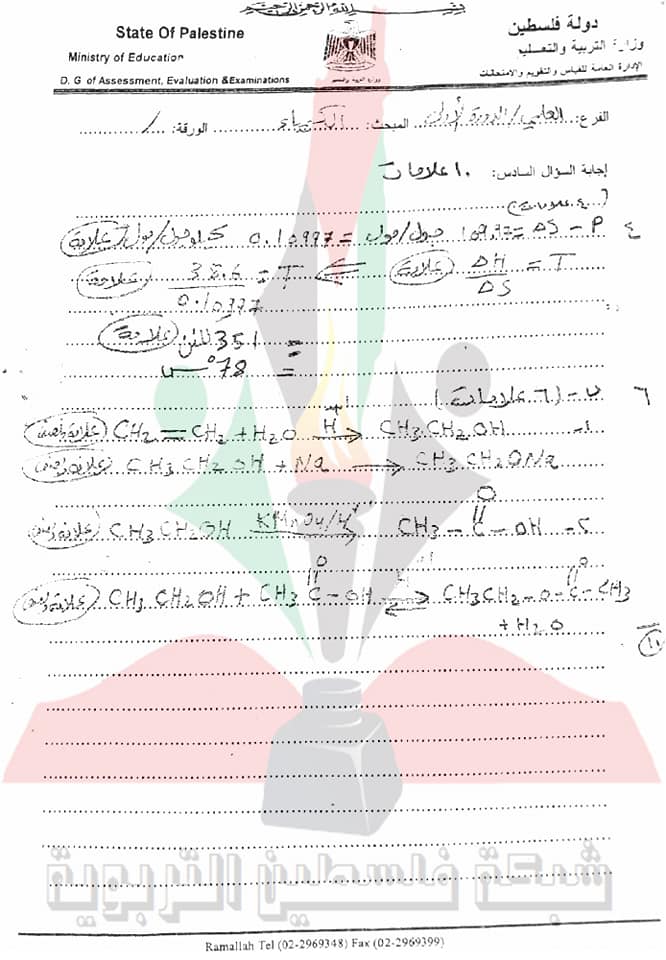 بسم الله الرحمن الرحيم
State Of Palestine
Ministry of Education
D. G of Assessment, Evaluation &Examinations
دولة فلسطين
وزارة التربية والتعليم
الإدارة العامة للقياس والتقويم والامتحانات
الفرع: العلمي/الدورة الأولى المبحث: الكيمياء الورقة:
إجابة السؤال السادس: ١٠ علامات
(٤ علامات)
٤ P - ΔS = 109.97 جول/مول = 0.10997 كيلوجول/مول (علامة)
T = ΔH / ΔS (علامة) ⇐ T = 38.6 / 0.10997 (علامة)
= 351 كلفن (علامة)
= 78°س
٦ ب - (٦ علامات)
١- CH2 = CH2 + H2O → H+ CH3CH2OH
CH3CH2OH + Na → CH3CH2ONa
٢- CH3CH2OH → KMnO4/H+ CH3 - C - OH
O
CH3CH2OH + CH3 C - OH ⇌ CH3CH2 - O - C - CH3
O O
+ H2O
١٠
شبكة فلسطين التربوية
Ramallah Tel (02-2969348) Fax (02-2969399)